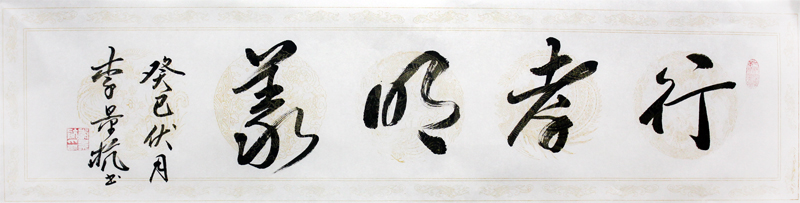 行孝明義
癸巳伏月
李
书